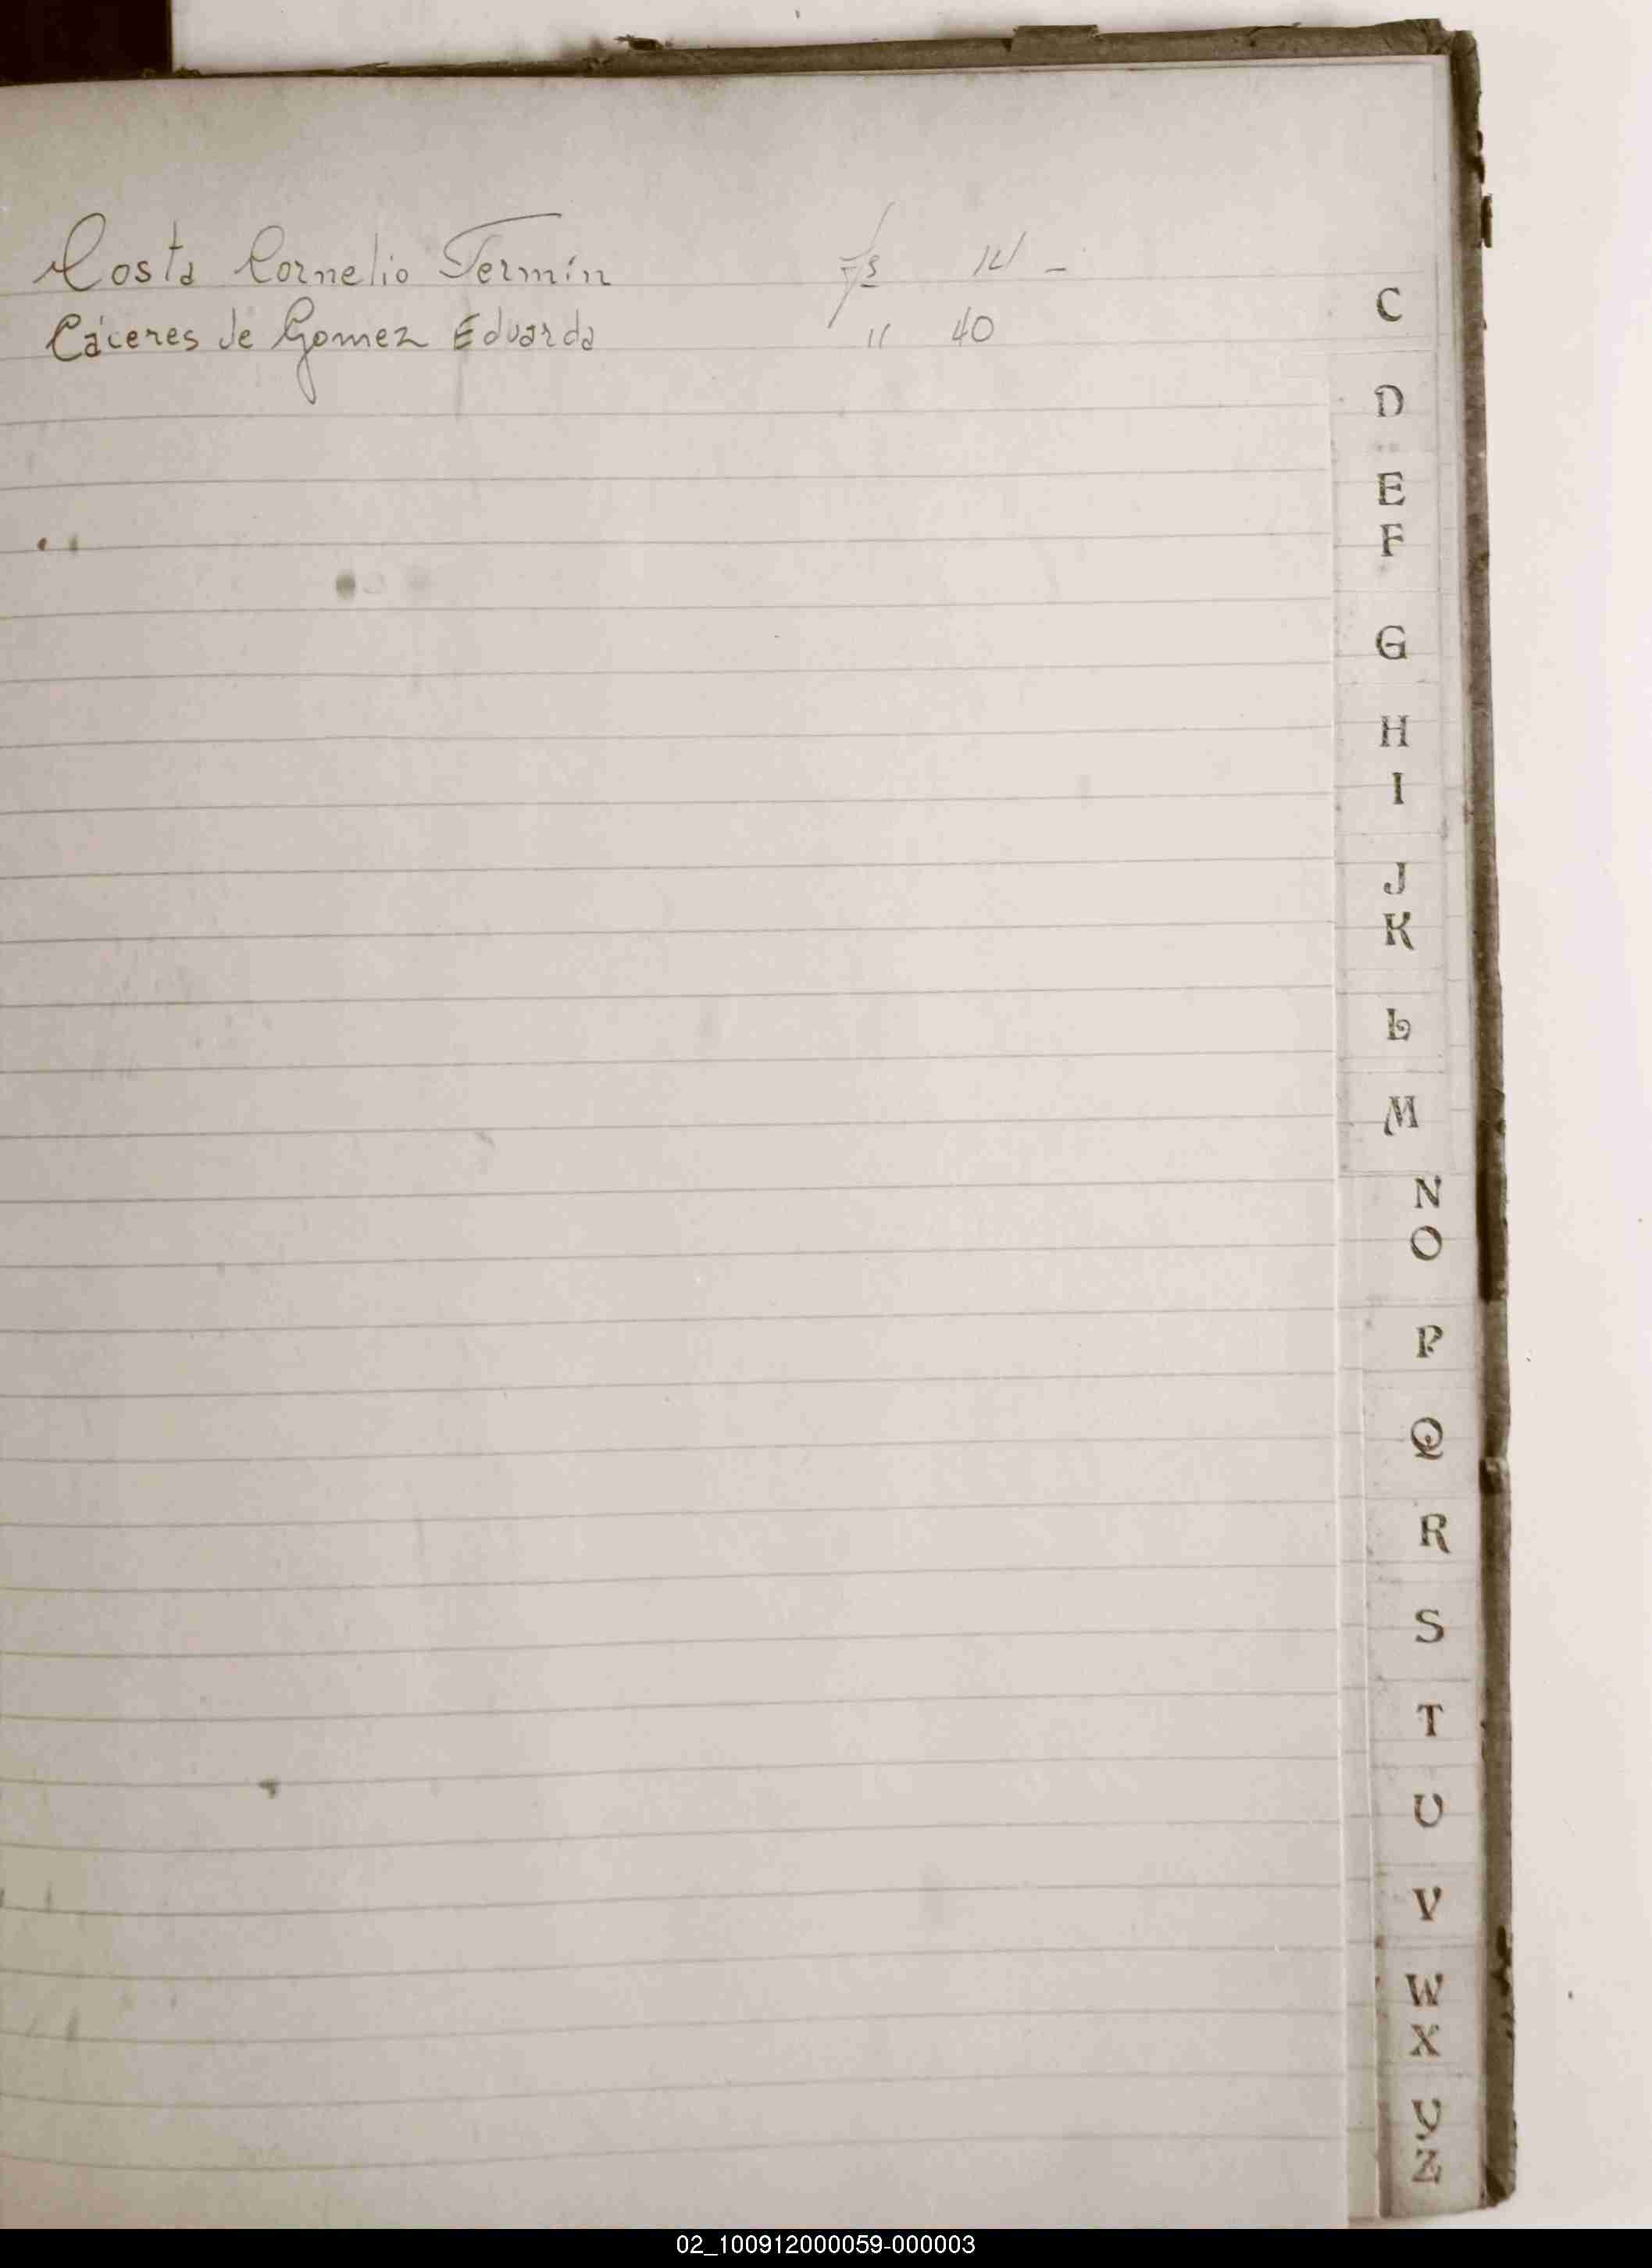 Costa Cornelio Fermín Fs 14 -
Cáceres de Gomez Eduarda " 40
C
D
E
F
G
H
I
J
K
L
M
N
O
P
Q
R
S
T
U
V
W
X
Y
Z
02_100912000059-000003